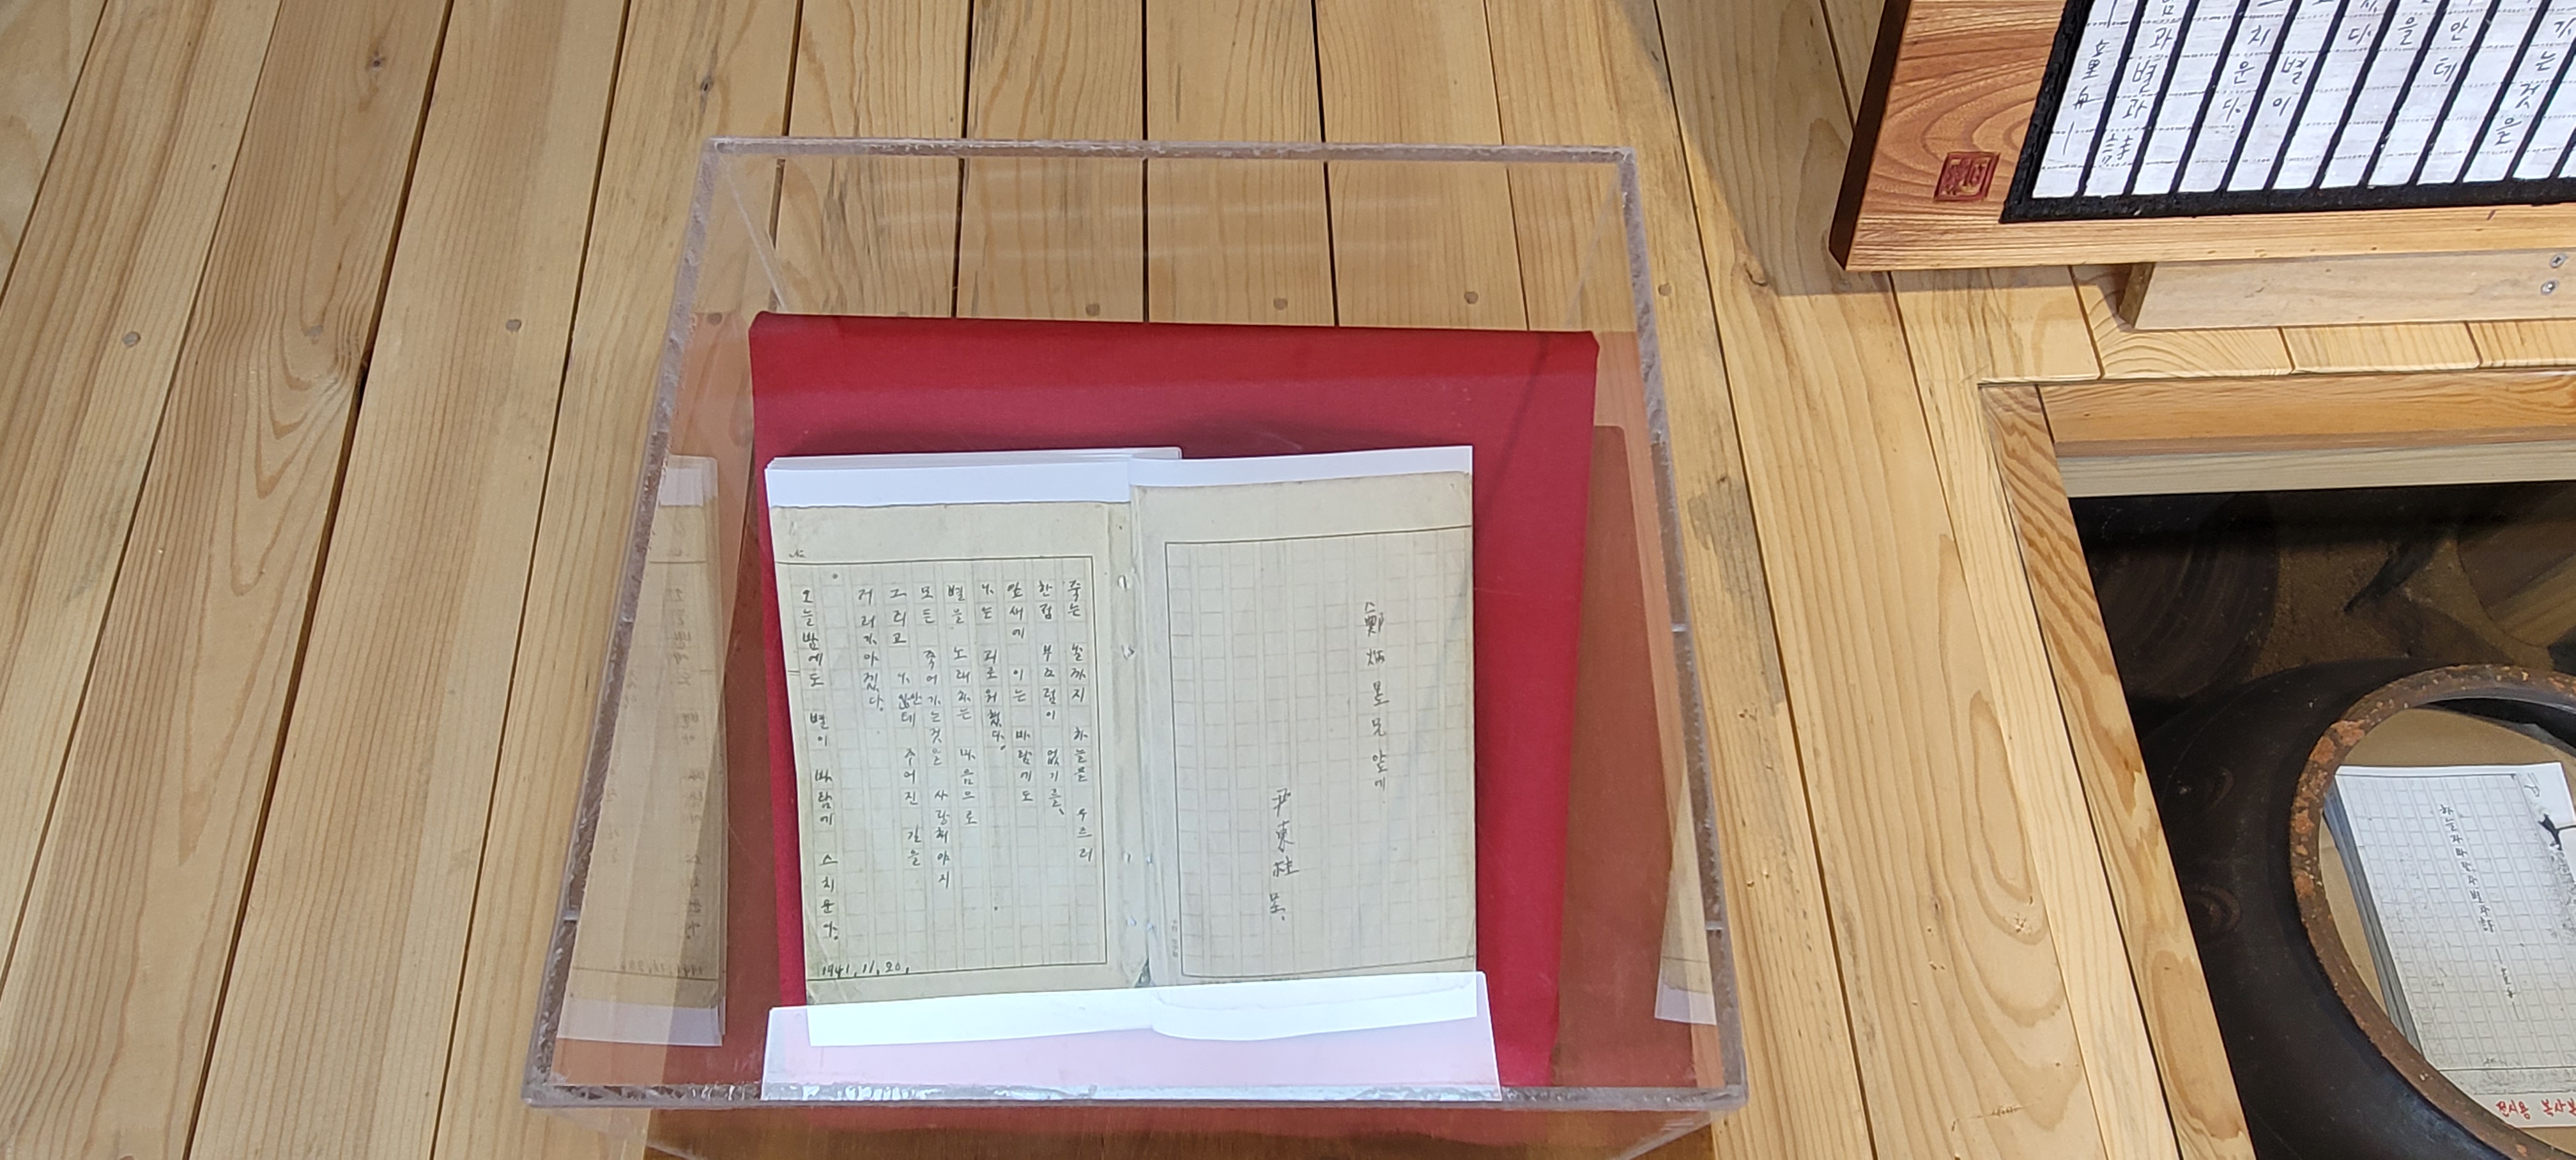 鄭炳昱兄 앞에
尹東柱 呈.
죽는 날까지 하늘을 우르러
한점 부끄럼이 없기를,
잎새에 이는 바람에도
나는 괴로워했다.
별을 노래하는 마음으로
모든 죽어가는것을 사랑해야지
그리고 나안테 주어진 길을
거러가야겠다.
오늘밤에도 별이 바람에 스치운다.
1941.11.20.
는 것을
안테
을
다.
별이
치운다.
과 별과 詩
—童舟—
하늘과 바람과 별과 詩
전시용 복사본